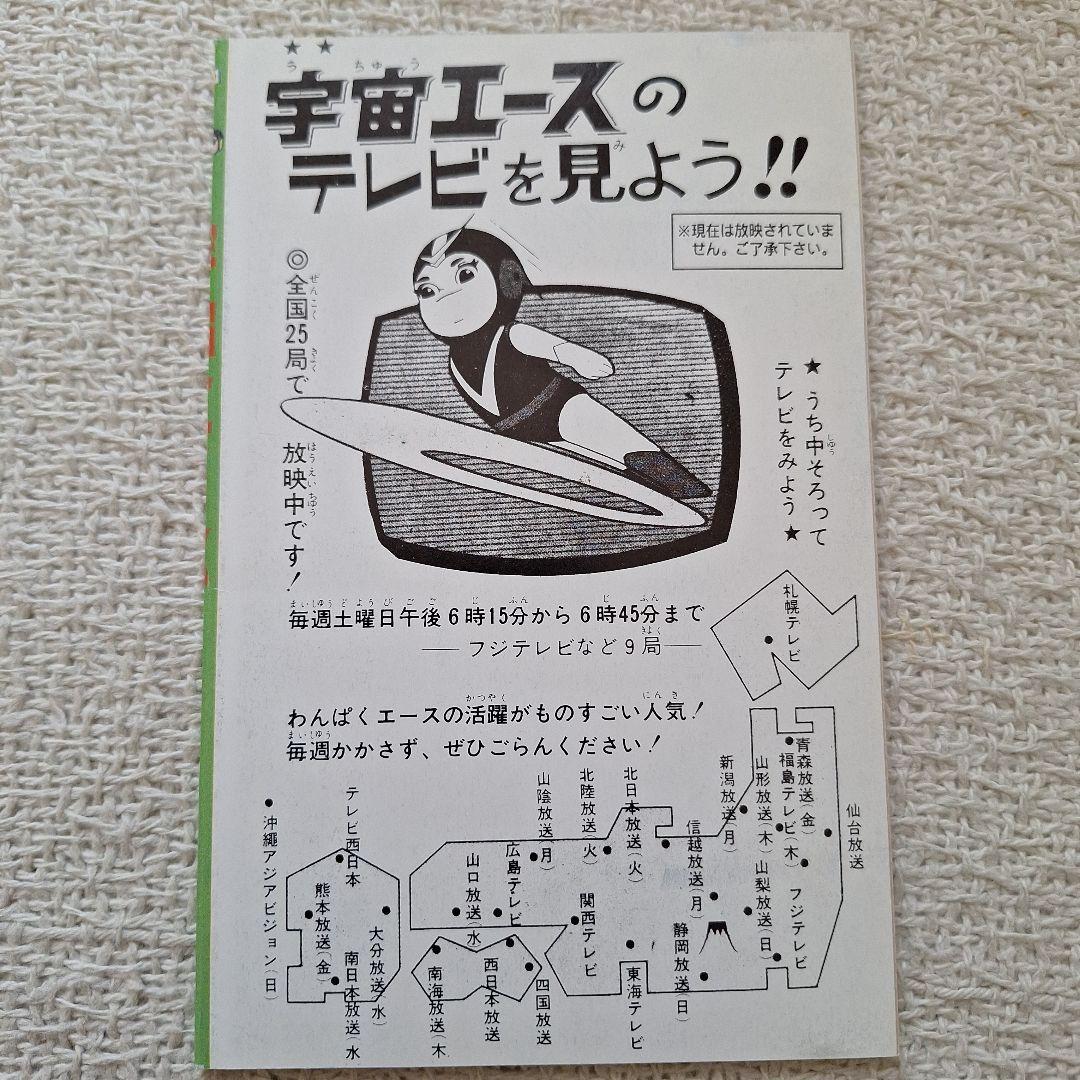 ★ ★
宇宙エースの
テレビを見よう!!
※現在は放映されていま
せん。ご了承下さい。
◎全国25局で
放映中です!
★うち中そろって
テレビをみよう★
毎週土曜日午後6時15分から6時45分まで
── フジテレビなど9局 ──
わんぱくエースの活躍がものすごい人気!
毎週かかさず、ぜひごらんください!
札幌テレビ
青森放送(金)
福島テレビ(木)
山形放送(木)
新潟放送(月)
仙台放送
北日本放送(火)
北陸放送(火)
山陰放送(月)
テレビ西日本
沖縄アジアビジョン(日)
信越放送(月)
山梨放送(日)
フジテレビ
広島テレビ
山口放送(水)
関西テレビ
静岡放送(日)
熊本放送(金)
大分放送(水)
南日本放送(水
南海放送(木
西日本放送
四国放送
東海テレビ